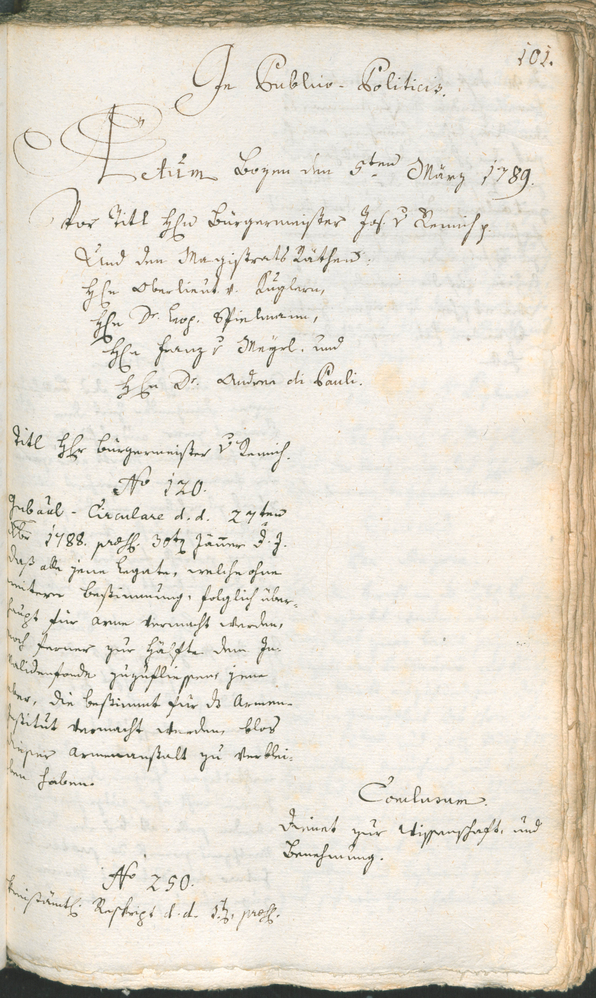 101.
In Publico-Politicis.
Actum Bozen den 5ten März 1789.
Vor Titl Hhn Bürgermeister Jos. v Remich p.
Und den Magistrats Räthen.
Hhn Oberlieut v. Kuglern,
Hhn Dr. Leop. Spielmann,
Hhn Franz v Mayrl. und
Hhn Dr. Andrea di Pauli.
Titl Hhr Bürgermeister v Remich.
No 120.
Gubäul-Circulare d. d. 27ten
Xbr 1788. praes. 30t Jänner d. J.
daß alle jene Legate, welche ohne
weitern Bestimmung, folglich über-
haupt für Arme vermacht werden,
noch ferner zur Hälfte dem In-
validenfonde zuzufliessen, jene
aber, die bestimmt für ds Armen-
institut vermacht werden, blos
dieser Armenanstalt zu verblei-
ben haben.
Conclusum.
Dienet zur Wissenschaft, und
Benehmung.
No 250.
Kreisämtl. Reskript d. d. praes.